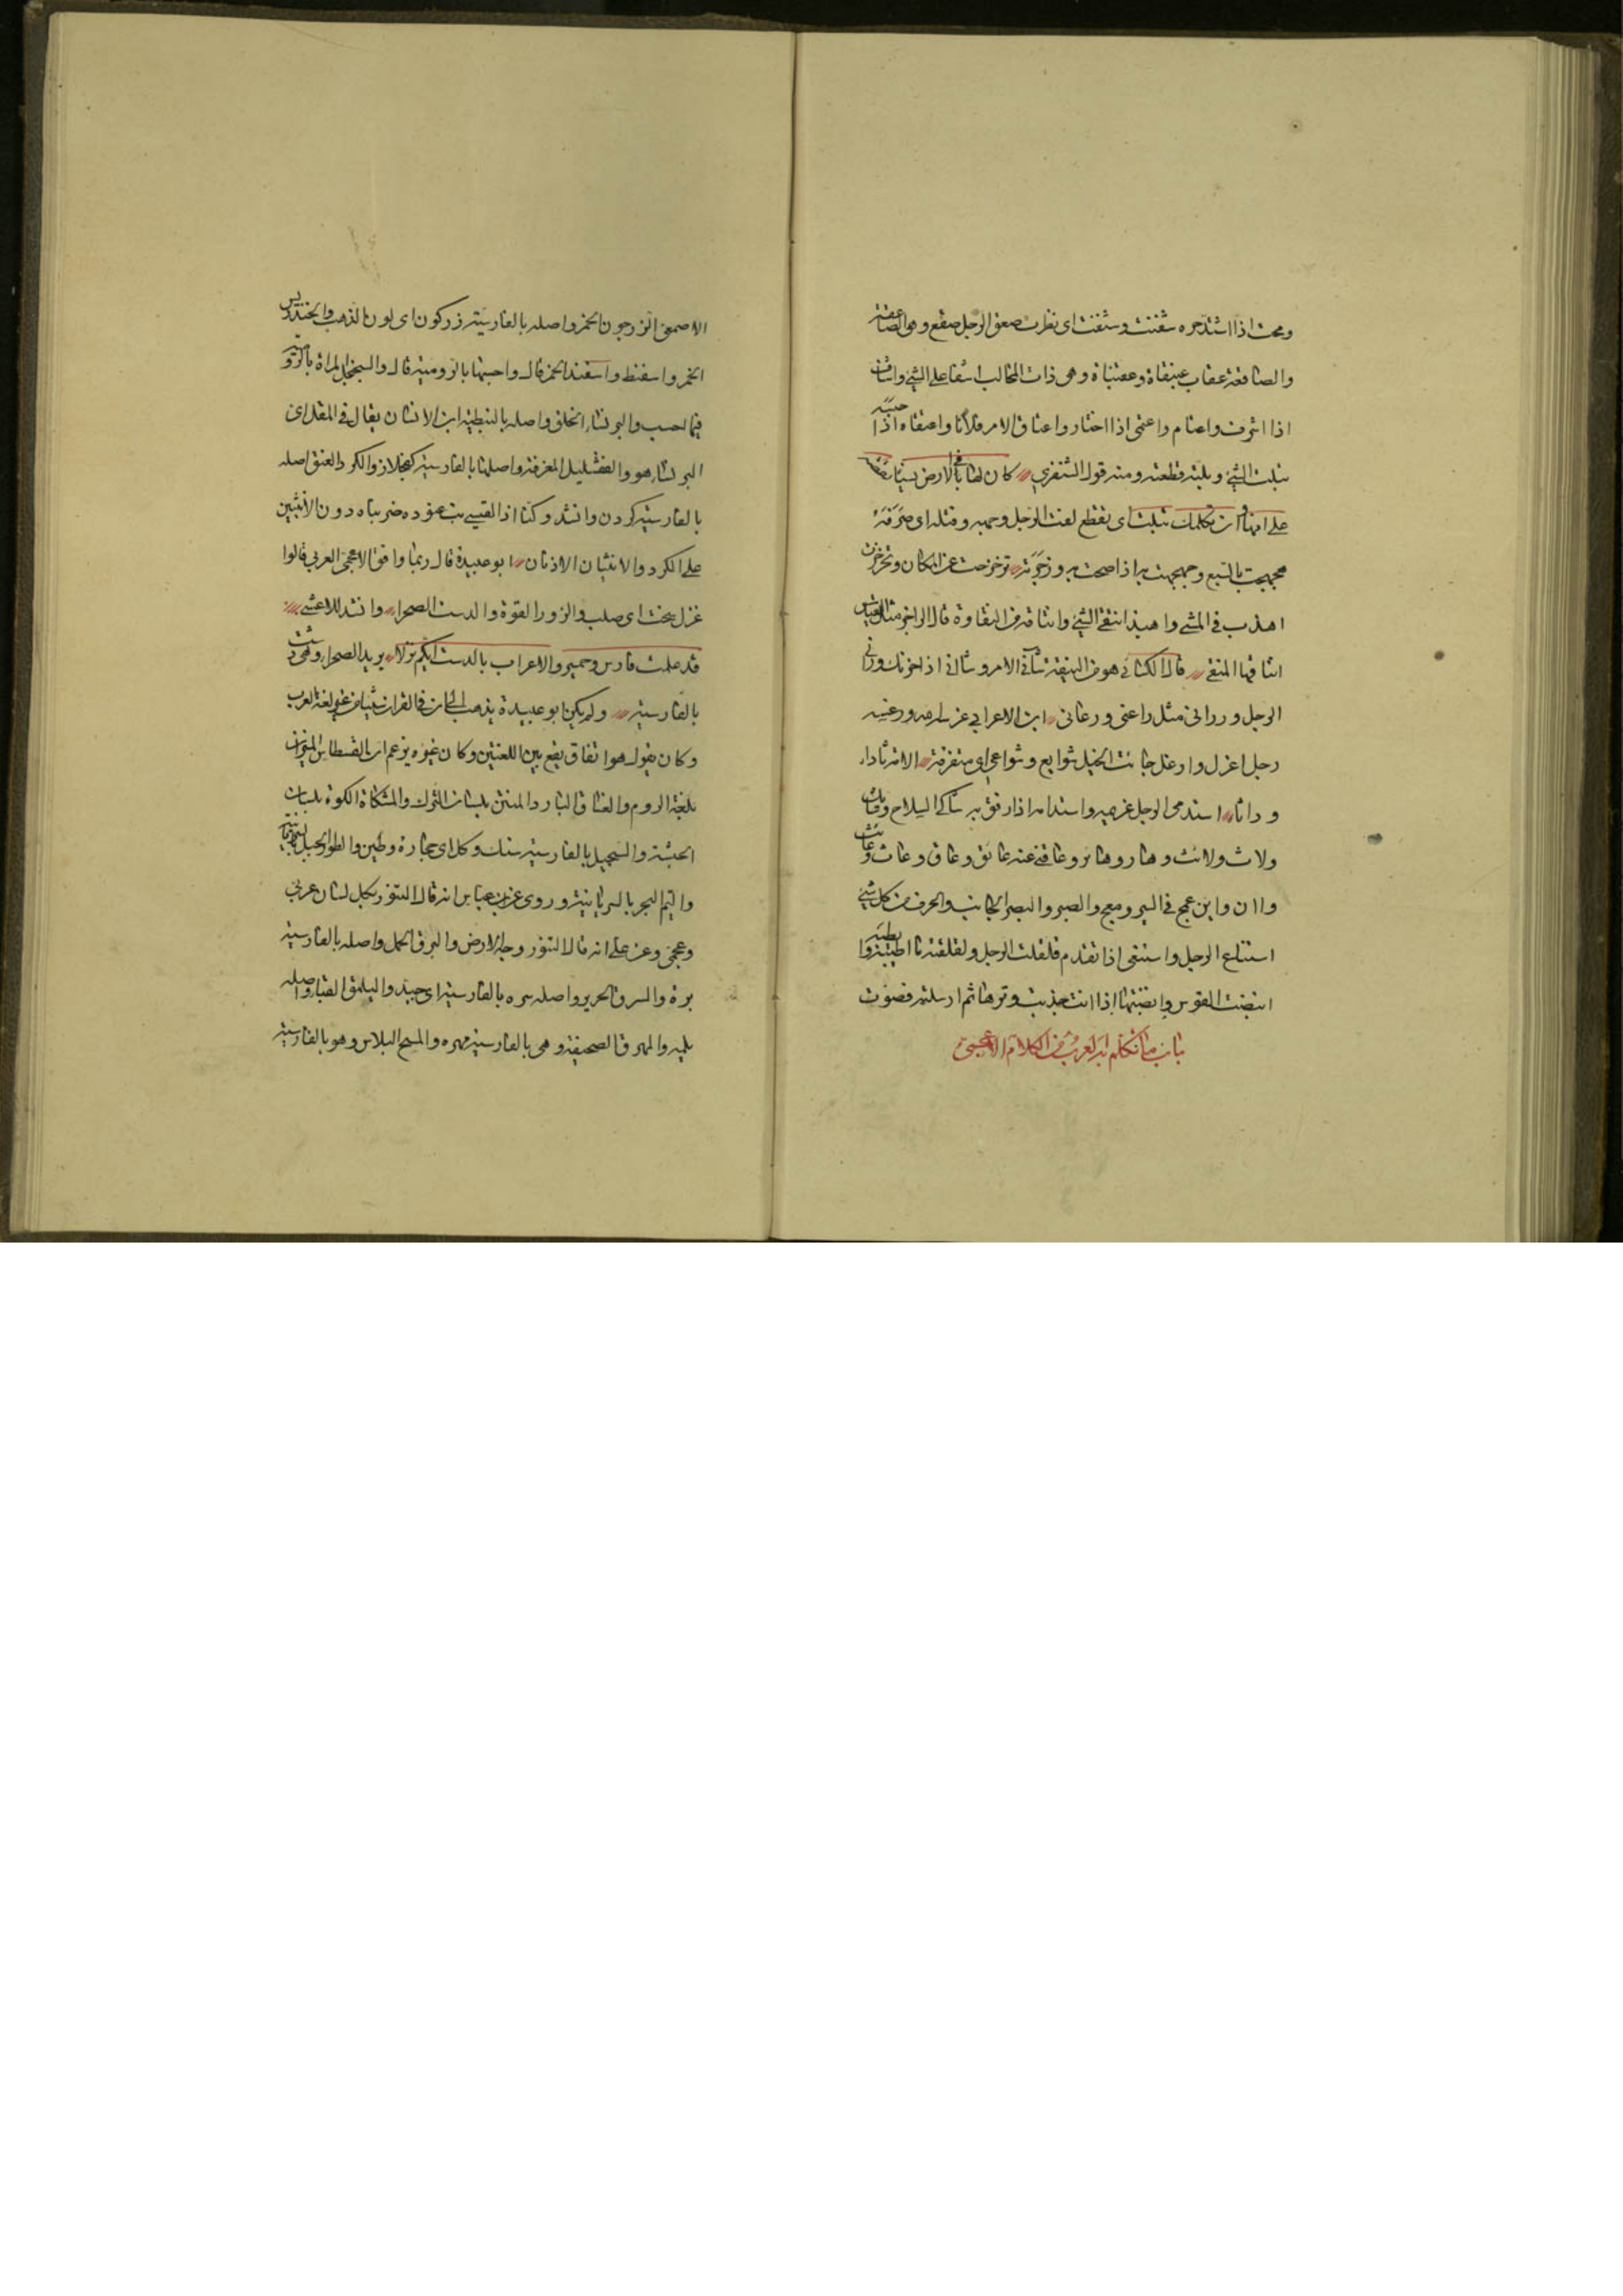 ومحت اذا اشتد حره شفنت وشنفت اى نظرت صعق الرجل صقع وهى الصاعقة
والصاقعة عقاب عبنقاة وعقنباة وهى ذات المخالب اشفا على الشئ واشاف
اذا اشرف واعتام واعتمى اذا اختار واعتاق الامر فلانا واعتقاه اذا حبسه
بتلت الشئ وبلته قطعته ومنه قول الشنفرى كان لها فى الارض نسيا تقصه
على امها وان تكلمك تبلت اى تقطع لفت الرجل وجهه وفتله اى صرفه
هجهجت بالسبع وجهجهت به اذا صحت به وزجرته تزحزحت عن المكان وتحزحزت
اهذب فى المشى واهبذ انتقى الشئ وانتاقه من النقاوة قال الراجز مثل القياس
انتاقها المنقى قال الكسائى هو من النيقة شآنى الامر وشاانى اذا حزنك ورانى
الرجل وراانى مثل راعنى ورعانى ابن الاعرابى
رجل اغزل وارغل جائت الخيل شوايع وشواعى اى متفرقة الاثر ثادا
وداثا استدمى الرجل غريمه واستدامه اذا رفق به شاك السلاح وشاك
ولاث ولائث وهار وهائر وعاقنى عنه عائق وعاق وعاث وعائث
واان واين عمج فى السير ومعج والصبر والبصر الجانب والحرف من كل شئ
استناع الرجل واستنعى اذا تقدم قلقلت الرجل ولقلقته ما اطيبه وايطبه
انبضت القوس وانضبتها اذا انت جذبت وترها ثم ارسلته فصوت
باب ما تكلم به العرب من الكلام الاعجمى
الاصمعى الزرجون الخمر واصله بالفارسية زركون اى لون الذهب والخندريس
الخمر واسفنط واسفند الخمر قال واحسبها بالرومية قال والسجنجل المراة بالرومية
فيما احسب والبرنشاء الخلق واصله بالنبطية ابن الانسان يقال فى المقل اى
البرنشاء هو والقفشليل المغرفة واصلها بالفارسية كفجلاز والكرد العنق اصله
بالفارسية كردن وانشد وكنا اذا القيسى نب عتوده ضربناه دون الانثيين
على الكرد والانثيان الاذنان ابو عبيدة قال ربما وافق الاعجمى العربى قالوا
غزل سخت اى صلب والزور القوة والدست الصحراء وانشد للاعشى
قد علمت فارس وحمير والاعراب بالدست ايكم نزلا يريد الصحراء وهى دشت
بالفارسية ولم يكن ابو عبيدة يذهب الى ان فى القران شيئا من غير لغة العرب
وكان يقول هو اتفاق يقع بين اللغتين وكان غيره يزعم ان القسطاس الميزان
بلغة الروم والغساق البارد المنتن بلسان الترك والمشكاة الكوة بلسان
الحبشة والسجيل بالفارسية سنك وكل اى حجارة وطين والطور الجبل بالسريانية
واليم البحر بالسريانية وروى عن ابن عباس انه قال التنور بكل لسان عربى
وعجمى وعن على انه قال التنور وجه الارض والبرق الحمل واصله بالفارسية
برة والسرق الحرير واصله سره بالفارسية اى جيد واليلمق القباء واصله
يلمه والمهرق الصحيفة وهى بالفارسية مهره والمسح البلاس وهو بالفارسية